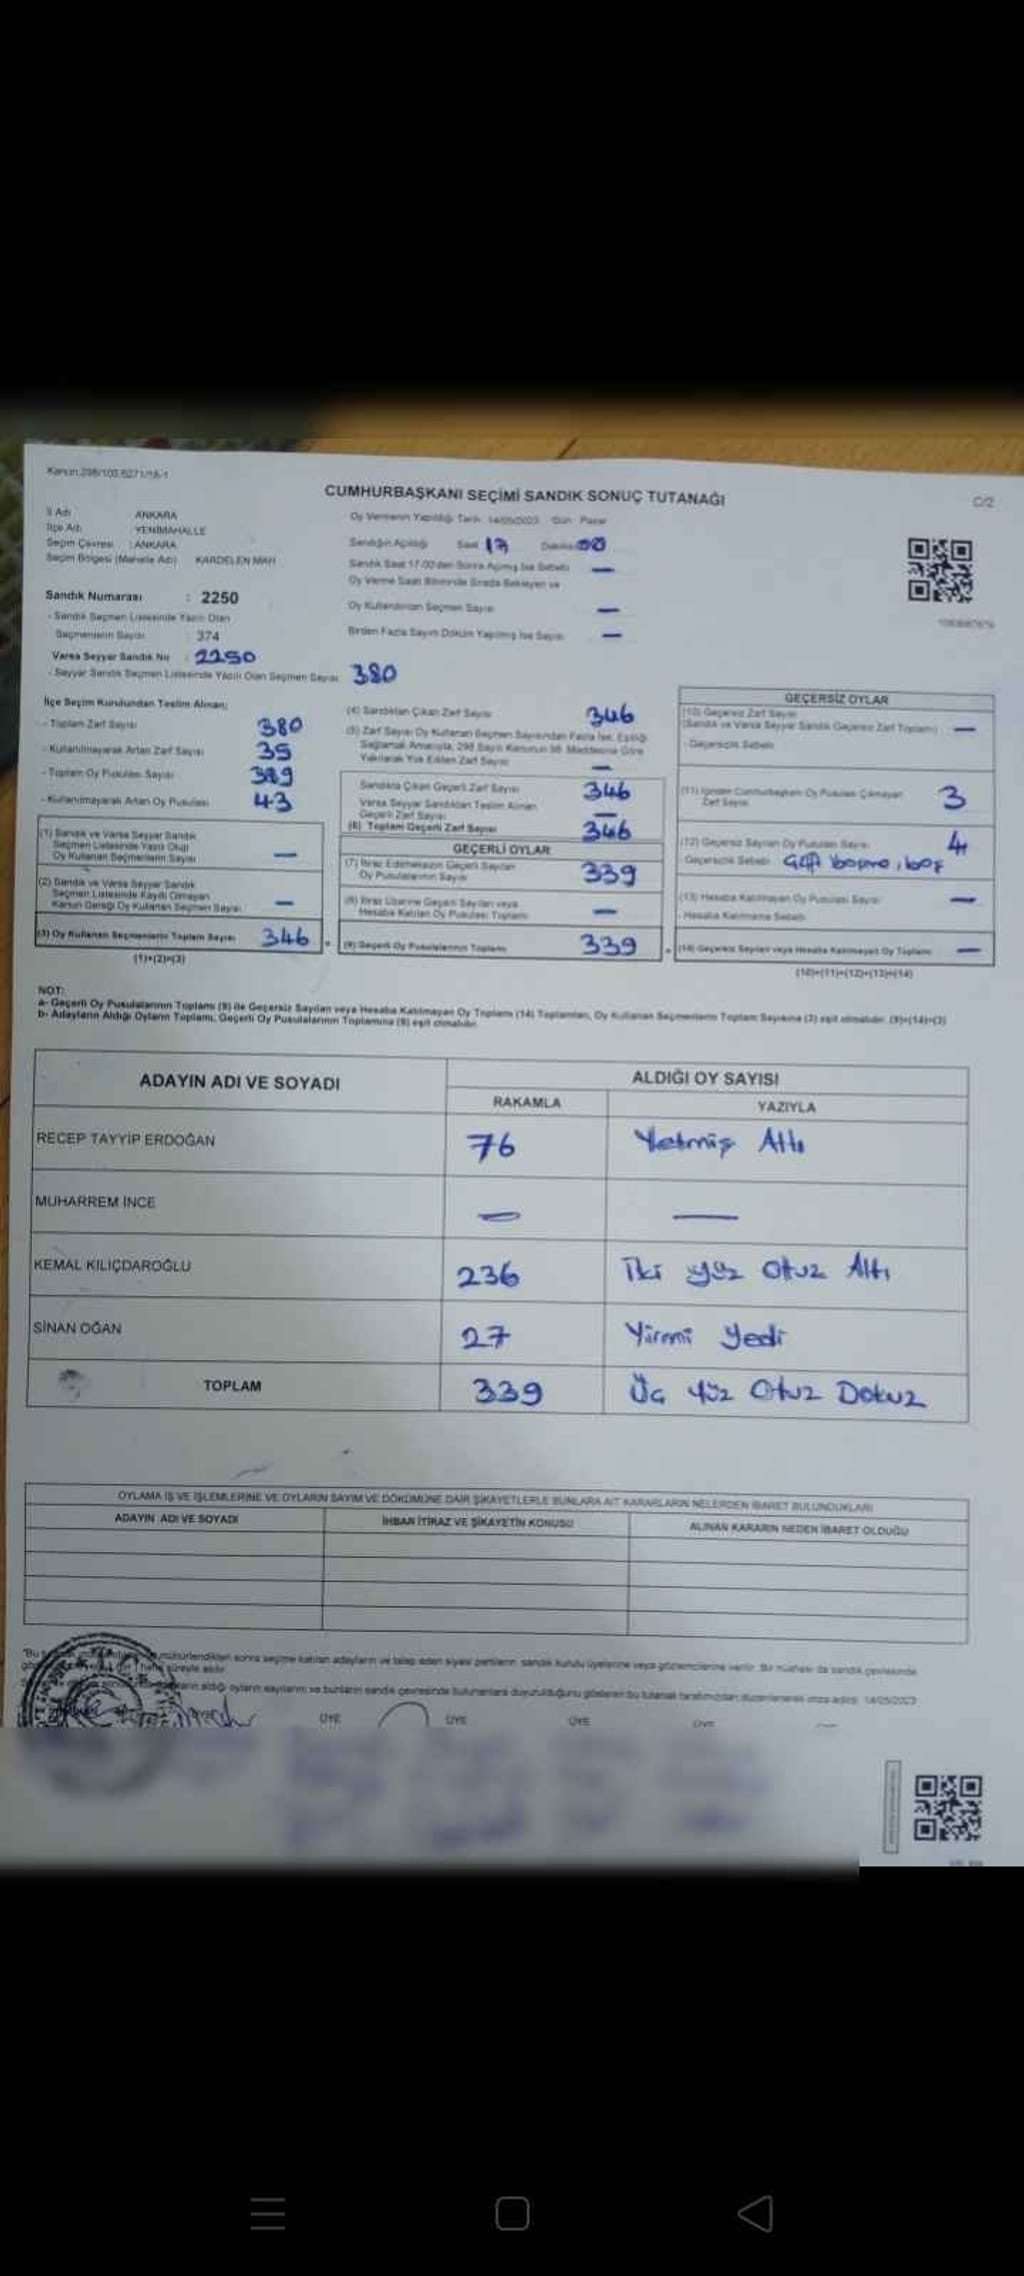 Kanun:298/105-6271/16-1
CUMHURBAŞKANI SEÇİMİ SANDIK SONUÇ TUTANAĞI
C/2
İl Adı ANKARA
İlçe Adı YENİMAHALLE
Seçim Çevresi : ANKARA
Seçim Bölgesi (Mahalle Adı) KARDELEN MAH
Oy Vermenin Yapıldığı Tarih 14/05/2023 Gün Pazar
Sandığın Açıldığı Saat 17 Dakika 00
Sandık Saat 17.00'den Sonra Açılmış İse Sebebi —
Oy Verme Saati Bitiminde Sırada Bekleyen ve
Oy Kullandırılan Seçmen Sayısı —
Birden Fazla Sayım Döküm Yapılmış İse Sayısı —
Sandık Numarası : 2250
- Sandık Seçmen Listesinde Yazılı Olan
Seçmenlerin Sayısı : 374
Varsa Seyyar Sandık No : 2250
- Seyyar Sandık Seçmen Listesinde Yazılı Olan Seçmen Sayısı 380
İlçe Seçim Kurulundan Teslim Alınan;
- Toplam Zarf Sayısı 380
- Kullanılmayarak Artan Zarf Sayısı 35
- Toplam Oy Pusulası Sayısı 389
- Kullanılmayarak Artan Oy Pusulası 43
(1) Sandık ve Varsa Seyyar Sandık
Seçmen Listesinde Yazılı Olup
Oy Kullanan Seçmenlerin Sayısı —
(2) Sandık ve Varsa Seyyar Sandık
Seçmen Listesinde Kayıtlı Olmayan
Kanun Gereği Oy Kullanan Seçmen Sayısı —
(3) Oy Kullanan Seçmenlerin Toplam Sayısı 346
(1)+(2)=(3)
(4) Sandıktan Çıkan Zarf Sayısı 346
(5) Zarf Sayısı Oy Kullanan Seçmen Sayısından Fazla İse, Eşitliği
Sağlamak Amacıyla, 298 Sayılı Kanunun 98. Maddesine Göre
Yakılarak Yok Edilen Zarf Sayısı —
Sandıkta Çıkan Geçerli Zarf Sayısı 346
Varsa Seyyar Sandıktan Teslim Alınan
Geçerli Zarf Sayısı —
(6) Toplam Geçerli Zarf Sayısı 346
GEÇERLİ OYLAR
(7) İtiraz Edilmeksizin Geçerli Sayılan
Oy Pusulalarının Sayısı 339
(8) İtiraz Üzerine Geçerli Sayılan veya
Hesaba Katılan Oy Pusulası Toplamı —
(9) Geçerli Oy Pusulalarının Toplamı 339
GEÇERSİZ OYLAR
(10) Geçersiz Zarf Sayısı
(Sandık ve Varsa Seyyar Sandık Geçersiz Zarf Toplamı) —
- Geçersizlik Sebebi
(11) İçinden Cumhurbaşkanı Oy Pusulası Çıkmayan
Zarf Sayısı 3
(12) Geçersiz Sayılan Oy Pusulası Sayısı 4
Geçersizlik Sebebi
(13) Hesaba Katılmayan Oy Pusulası Sayısı —
- Hesaba Katılmama Sebebi
(14) Geçersiz Sayılan veya Hesaba Katılmayan Oy Toplamı —
(10)+(11)+(12)+(13)=(14)
NOT:
a- Geçerli Oy Pusulalarının Toplamı (9) ile Geçersiz Sayılan veya Hesaba Katılmayan Oy Toplamı (14) Toplamları, Oy Kullanan Seçmenlerin Toplam Sayısına (3) eşit olmalıdır. (9)+(14)=(3)
b- Adayların Aldığı Oyların Toplamı, Geçerli Oy Pusulalarının Toplamına (9) eşit olmalıdır.
ADAYIN ADI VE SOYADI
ALDIĞI OY SAYISI
RAKAMLA YAZIYLA
RECEP TAYYİP ERDOĞAN 76 Yetmiş Altı
MUHARREM İNCE — —
KEMAL KILIÇDAROĞLU 236 İki yüz Otuz Altı
SİNAN OĞAN 27 Yirmi Yedi
TOPLAM 339 Üç Yüz Otuz Dokuz
OYLAMA İŞ VE İŞLEMLERİNE VE OYLARIN SAYIM VE DÖKÜMÜNE DAİR ŞİKAYETLERLE BUNLARA AİT KARARLARIN NELERDEN İBARET BULUNDUKLARI
ADAYIN ADI VE SOYADI İHBAR İTİRAZ VE ŞİKAYETİN KONUSU ALINAN KARARIN NEDEN İBARET OLDUĞU
mühürlendikten sonra seçime katılan adayların ve talep eden siyasi partilerin sandık kurulu üyelerine veya gözlemcilerine verilir. Bir nüshası da sandık çevresinde
süreyle asılır.
aldığı oyların sayılarını ve bunların sandık çevresinde bulunanlara duyurulduğunu gösteren bu tutanak tarafımızdan düzenlenerek imza edildi. 14/05/2023
ÜYE ÜYE ÜYE ÜYE